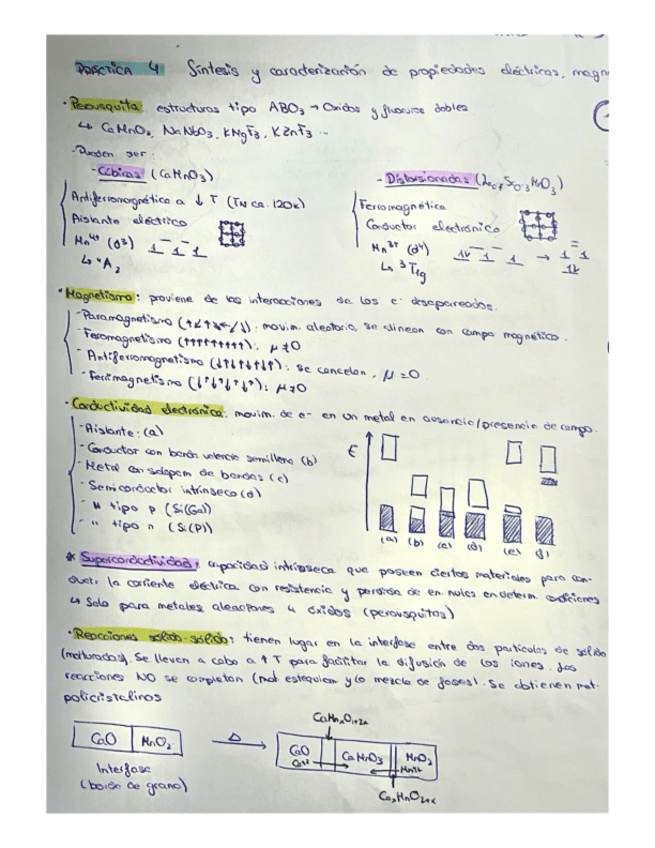 PRÁCTICA 4 Síntesis y caracterización de propiedades eléctricas, magn
· Perovsquita: estructuras tipo ABO3 → Oxidos y fluoruros dobles
↳ CaMnO3, NaNbO3, KMgF3, KZnF3 ...
- Pueden ser:
- Cúbicas (CaMnO3)
Antiferromagnética a ↓ T (TN ca. 120K)
Aislante eléctrico
Mn4+ (d3) 1 1 1
↳ 4A2
- Distorsionadas (La0.7Sr0.3MnO3)
Ferromagnética
Conductor electrónico
Mn3+ (d4) 1l 1 1 → 1 1 1l
↳ 3T1g
· Magnetismo: proviene de las interacciones de los e- desapareados.
- Paramagnetismo: movim. aleatorio, se alinean con campo magnético.
- Ferromagnetismo (↑↑↑↑↑↑↑↑↑): μ≠0
- Antiferromagnetismo (↓↑↓↑↓↑↓↑): se cancelan, μ=0
- Ferrimagnetismo (↓↑↓↑↓↑↓): μ≠0
· Conductividad electrónica: movim. de e- en un metal en ausencia/presencia de campo.
- Aislante: (a)
- Conductor con banda valencia semillena (b)
- Metal con solapam de bandas (c)
- Semiconductor intrínseco (d)
- " tipo p (Si(Ga))
- " tipo n (Si(P))
E
(a) (b) (c) (d) (e) (f)
* Superconductividad: capacidad intrínseca que poseen ciertos materiales para con-
ducir la corriente eléctrica con resistencia y perdida de en. nulas en determ. condiciones
↳ Solo para metales aleaciones y óxidos (perovsquitas)
· Reacciones sólido-sólido: tienen lugar en la interfase entre dos partículas de sólido
(molturadas). Se llevan a cabo a ↑ T para facilitar la difusión de los iones. Las
reacciones NO se completan (no estequiom y/o mezcla de fases). Se obtienen mat.
policristalinos
CaO MnO2
Interfase
(borde de grano)
Δ
CaMnxO1+2x
CaO CaMnO3 MnO2
Ca2+ Mn4+
CaxMnO2+x